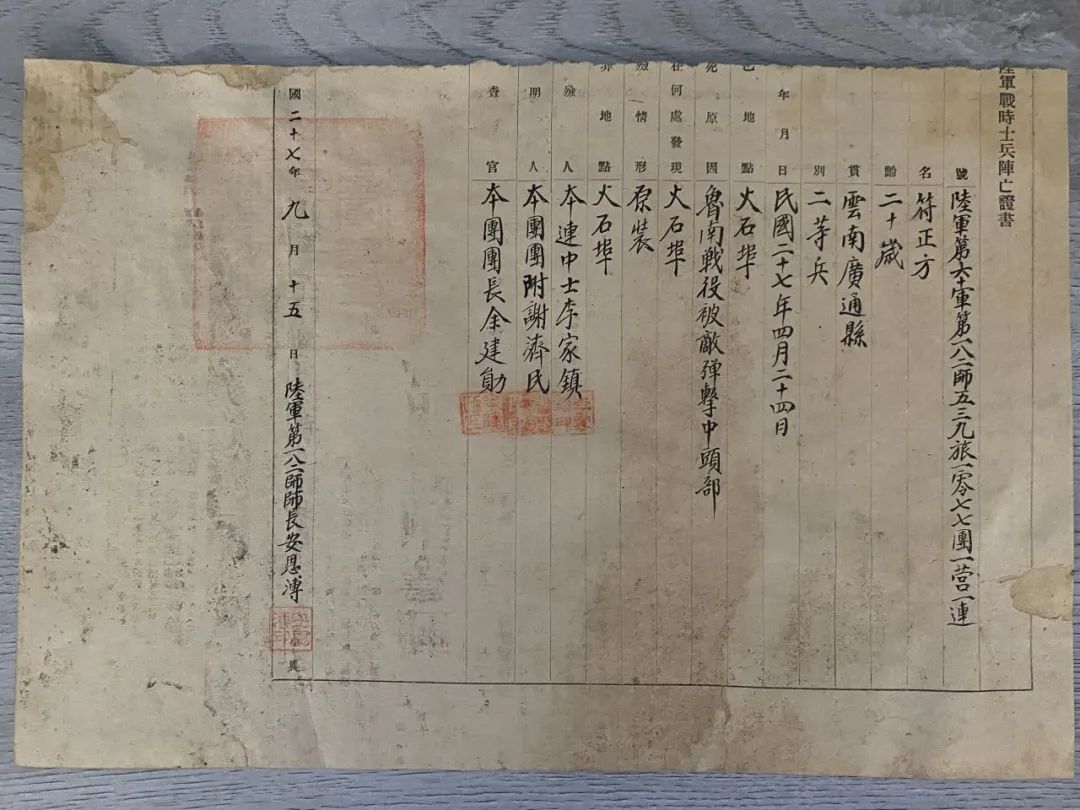 陸軍戰時士兵陣亡證書
號 陸軍第六十軍第一八二師五三九旅一零七七團一營一連
名 符正方
齡 二十歲
貫 雲南廣通縣
別 二等兵
年月日 民國二十七年四月二十四日
亡地點 火石埠
死原因 魯南戰役被敵彈擊中頭部
在何處發現 火石埠
殮情形 原裝
葬地點 火石埠
殮人 本連中士李家鎮
明人 本團團附謝濟民
查官 本團團長余建勛
國二十七年九月十五日 陸軍第一八二師師長安恩溥